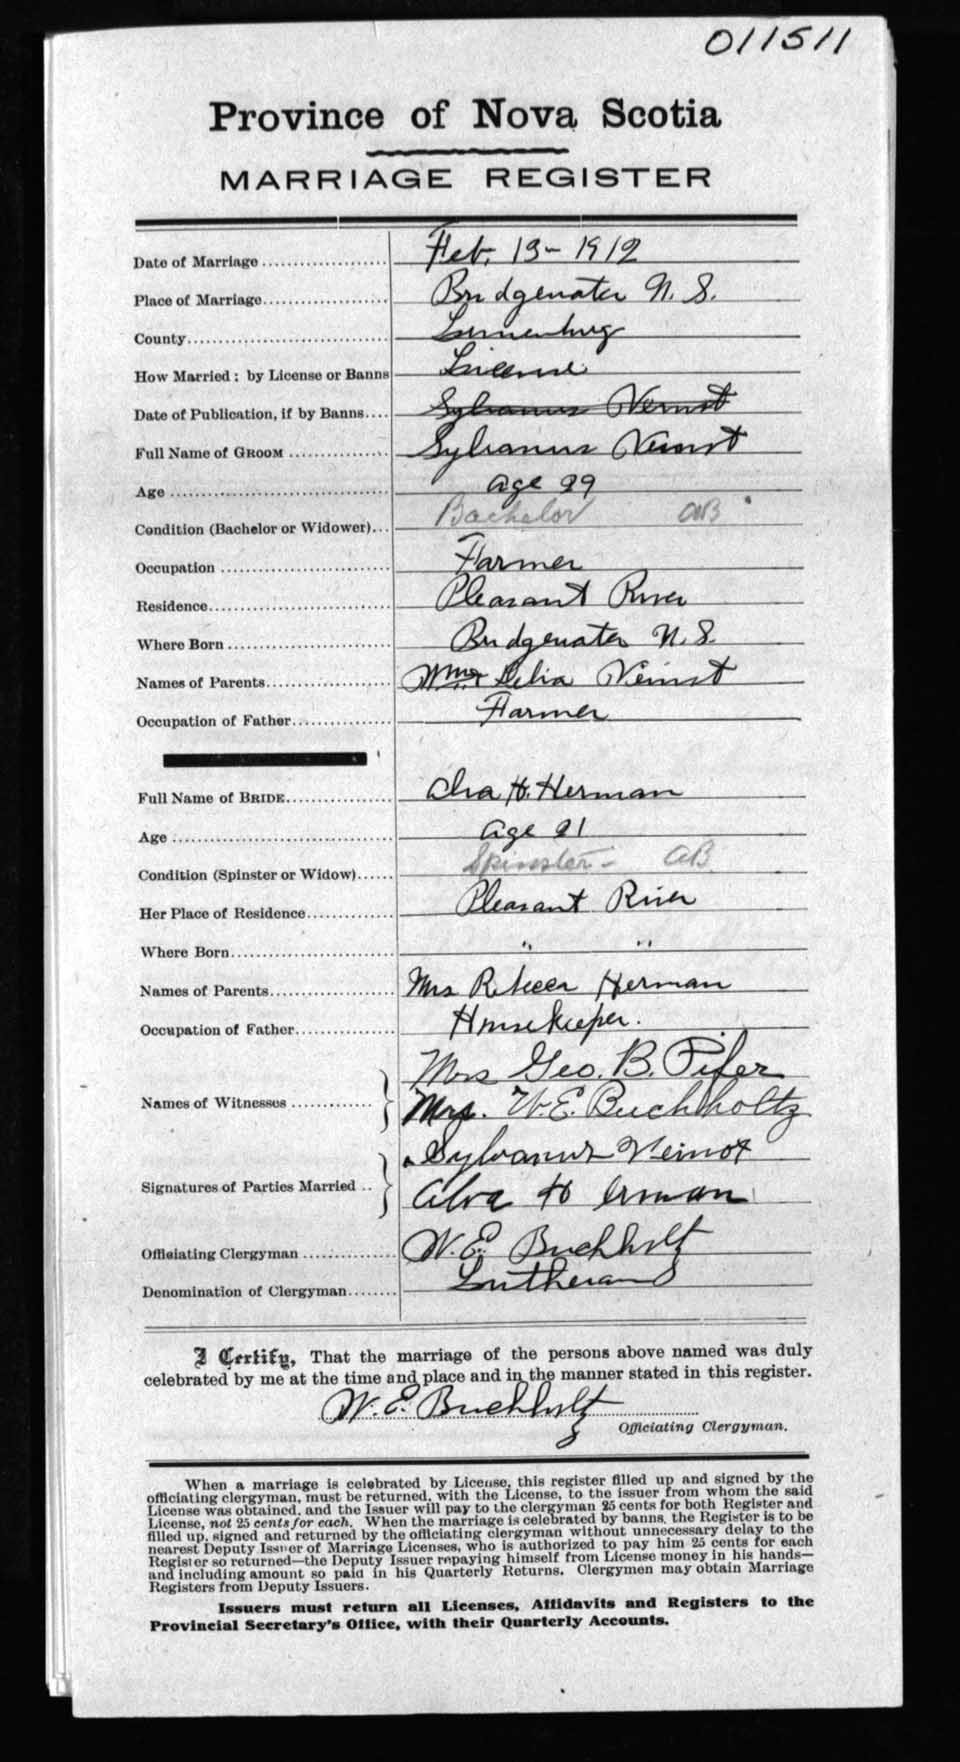 011511
Province of Nova Scotia
MARRIAGE REGISTER
Date of Marriage Feb. 13 - 1912
Place of Marriage Bridgewater N. S.
County Lunenburg
How Married: by License or Banns License
Date of Publication, if by Banns Sylvanus Veinot
Full Name of GROOM Sylvanus Veinot
Age age 29
Condition (Bachelor or Widower) Bachelor AB
Occupation Farmer
Residence Pleasant River
Where Born Bridgewater N. S.
Names of Parents Wm & Delia Veinot
Occupation of Father Farmer
Full Name of BRIDE Alva H. Herman
Age age 21
Condition (Spinster or Widow) Spinster - AB
Her Place of Residence Pleasant River
Where Born " "
Names of Parents Mrs Rebecca Herman
Occupation of Father Housekeeper.
Mrs Geo. B. Pifer
Names of Witnesses Mrs. W. E. Buchholtz
Sylvanus Veinot
Signatures of Parties Married Alva Herman
Officiating Clergyman W. E. Buchholtz
Denomination of Clergyman Lutheran
I Certify, That the marriage of the persons above named was duly
celebrated by me at the time and place and in the manner stated in this register.
W. E. Buchholtz
Officiating Clergyman.
When a marriage is celebrated by License, this register filled up and signed by the
officiating clergyman, must be returned, with the License, to the issuer from whom the said
License was obtained, and the Issuer will pay to the clergyman 25 cents for both Register and
License, not 25 cents for each. When the marriage is celebrated by banns, the Register is to be
filled up, signed and returned by the officiating clergyman without unnecessary delay to the
nearest Deputy Issuer of Marriage Licenses, who is authorized to pay him 25 cents for each
Register so returned—the Deputy Issuer repaying himself from License money in his hands—
and including amount so paid in his Quarterly Returns. Clergymen may obtain Marriage
Registers from Deputy Issuers.
Issuers must return all Licenses, Affidavits and Registers to the
Provincial Secretary's Office, with their Quarterly Accounts.